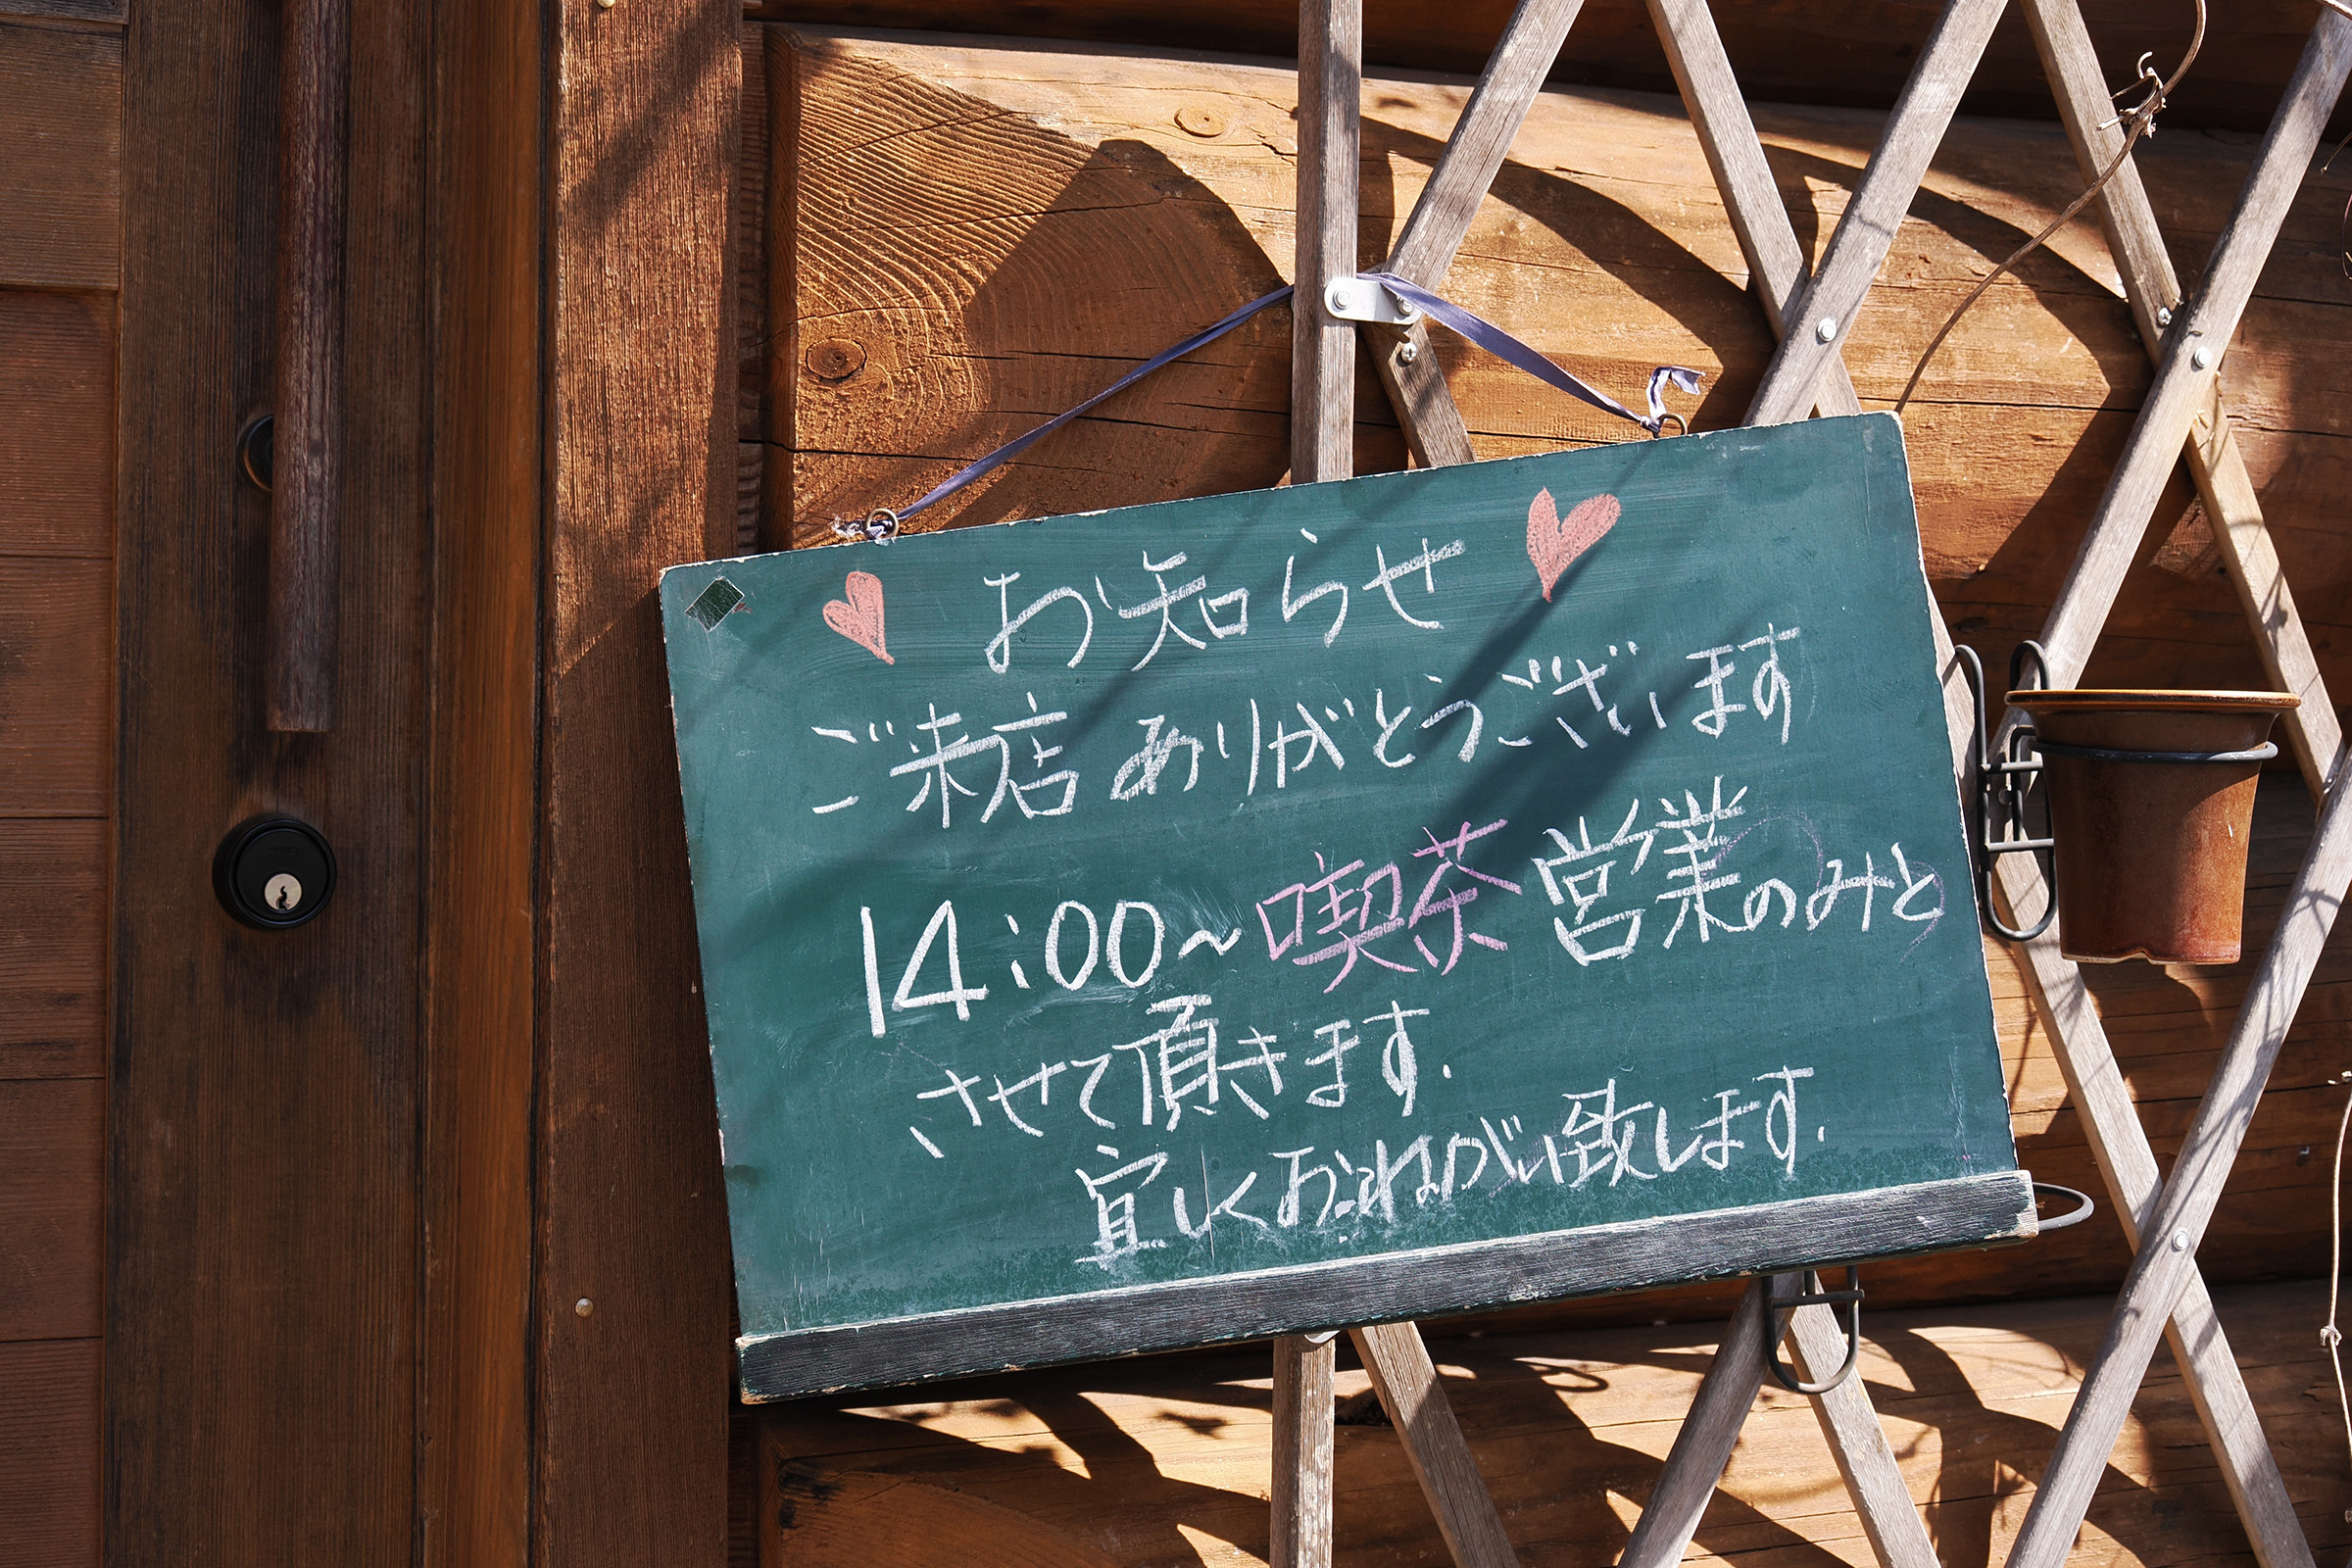 お知らせ
ご来店ありがとうございます
14:00~喫茶営業のみと
させて頂きます.
宜しくおねがい致します.